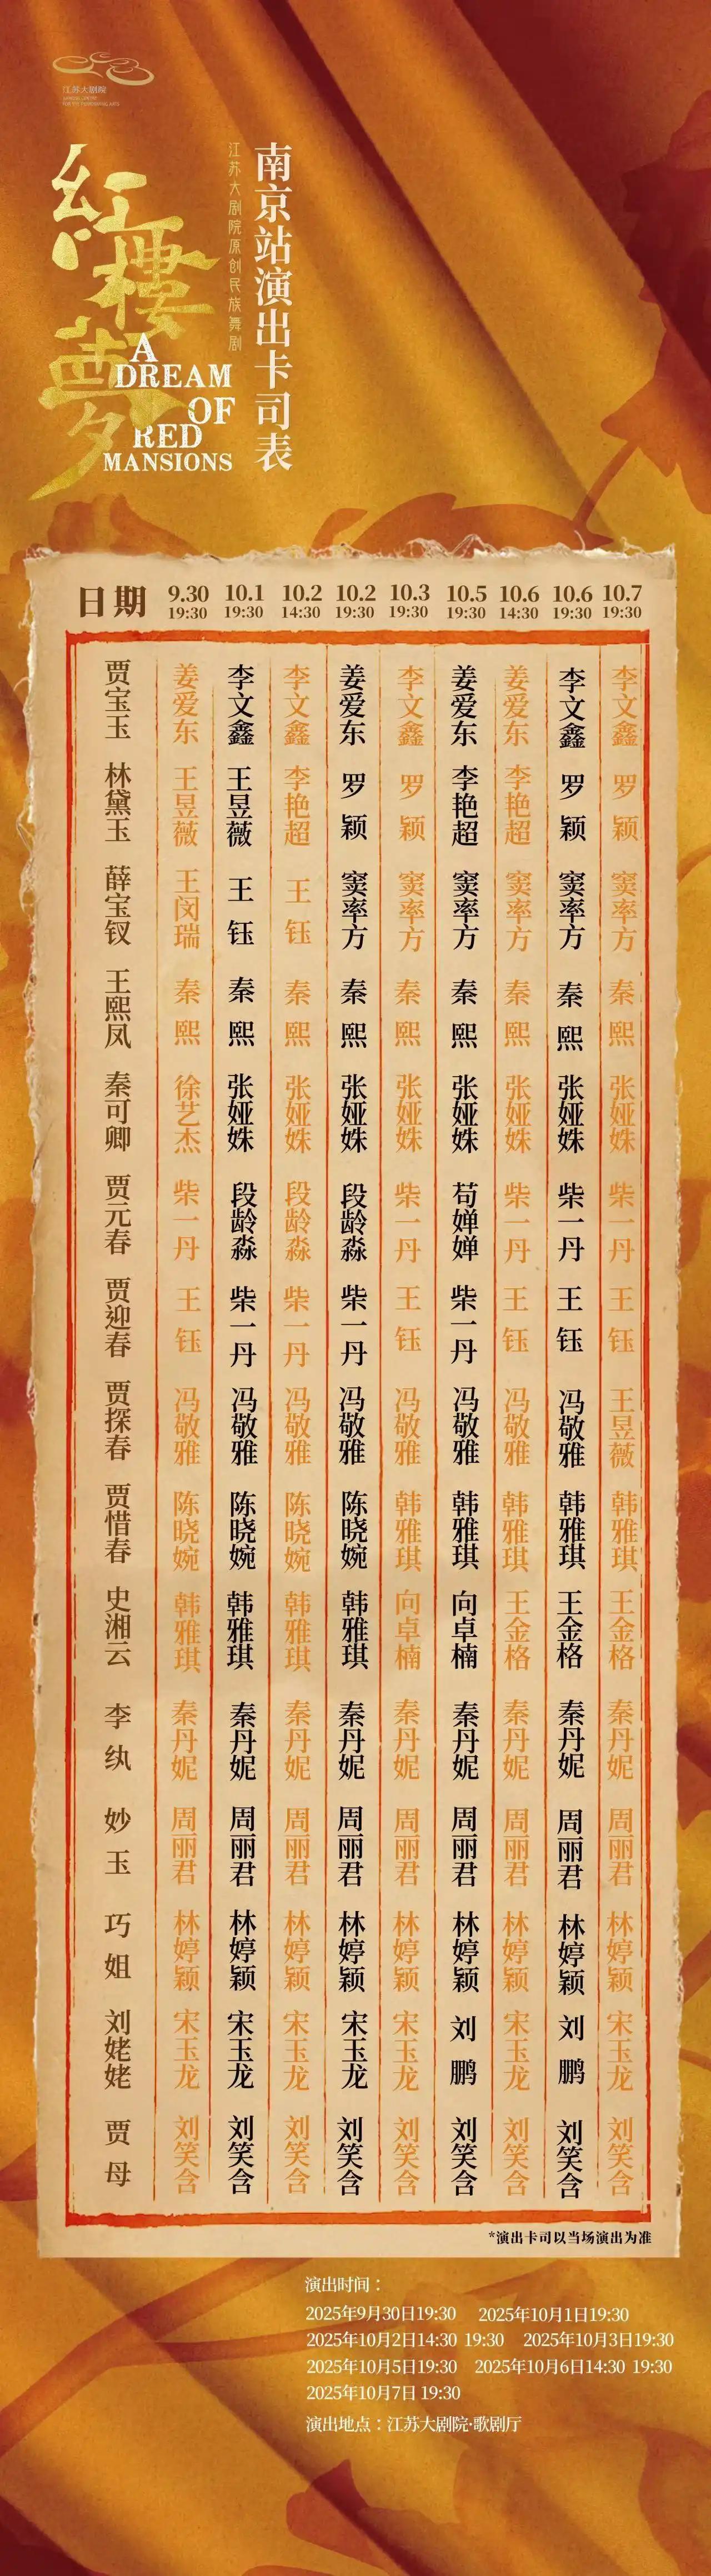 江苏大剧院
红楼梦
A
DREAM
OF
RED
MANSIONS
江苏大剧院原创民族舞剧
南京站演出卡司表
日期 9.30 19:30 10.1 19:30 10.2 14:30 10.2 19:30 10.3 19:30 10.5 19:30 10.6 14:30 10.6 19:30 10.7 19:30
贾宝玉 姜爱东 李文鑫 李文鑫 姜爱东 李文鑫 姜爱东 姜爱东 李文鑫 李文鑫
林黛玉 王昱薇 王昱薇 李艳超 罗颖 罗颖 李艳超 李艳超 罗颖 罗颖
薛宝钗 王闵瑞 王钰 王钰 窦率方 窦率方 窦率方 窦率方 窦率方 窦率方
王熙凤 秦熙 秦熙 秦熙 秦熙 秦熙 秦熙 秦熙 秦熙 秦熙
秦可卿 徐艺杰 张娅姝 张娅姝 张娅姝 张娅姝 张娅姝 张娅姝 张娅姝 张娅姝
贾元春 柴一丹 段龄淼 段龄淼 段龄淼 柴一丹 苟婵婵 柴一丹 柴一丹 柴一丹
贾迎春 王钰 柴一丹 柴一丹 柴一丹 王钰 柴一丹 王钰 王钰 王钰
贾探春 冯敬雅 冯敬雅 冯敬雅 冯敬雅 冯敬雅 冯敬雅 冯敬雅 冯敬雅 王昱薇
贾惜春 陈晓婉 陈晓婉 陈晓婉 陈晓婉 韩雅琪 韩雅琪 韩雅琪 韩雅琪 韩雅琪
史湘云 韩雅琪 韩雅琪 韩雅琪 韩雅琪 向卓楠 向卓楠 王金格 王金格 王金格
李纨 秦丹妮 秦丹妮 秦丹妮 秦丹妮 秦丹妮 秦丹妮 秦丹妮 秦丹妮 秦丹妮
妙玉 周丽君 周丽君 周丽君 周丽君 周丽君 周丽君 周丽君 周丽君 周丽君
巧姐 林婷颖 林婷颖 林婷颖 林婷颖 林婷颖 林婷颖 林婷颖 林婷颖 林婷颖
刘姥姥 宋玉龙 宋玉龙 宋玉龙 宋玉龙 宋玉龙 刘鹏 宋玉龙 刘鹏 宋玉龙
贾母 刘笑含 刘笑含 刘笑含 刘笑含 刘笑含 刘笑含 刘笑含 刘笑含 刘笑含
*演出卡司以当场演出为准
演出时间：
2025年9月30日19:30 2025年10月1日19:30
2025年10月2日14:30 19:30 2025年10月3日19:30
2025年10月5日19:30 2025年10月6日14:30 19:30
2025年10月7日 19:30
演出地点：江苏大剧院·歌剧厅